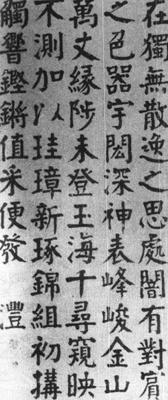 在獨無散逸之思處闇有對賓
之色器宇閎深神表峰峻金山
萬丈緣陟未登玉海千尋窺映
不測加以珪璋新琢錦組初搆
觸響鏗鏘值采便發 灃